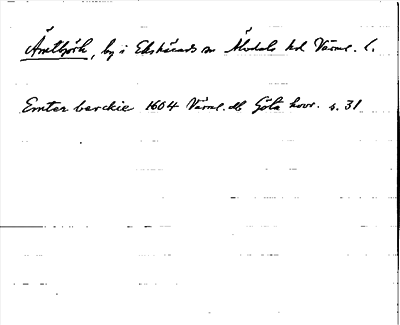 Ämtbjörk, by i Ekshärads sn Älvdals hd Värml. l.
Emter barckie 1604 Värml. db Göta hovr. s. 31